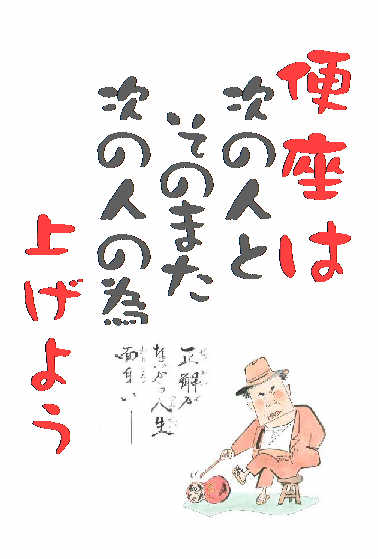 便座は
次の人と
そのまた
次の人の為
上げよう
正解が
ないから人生
面白い